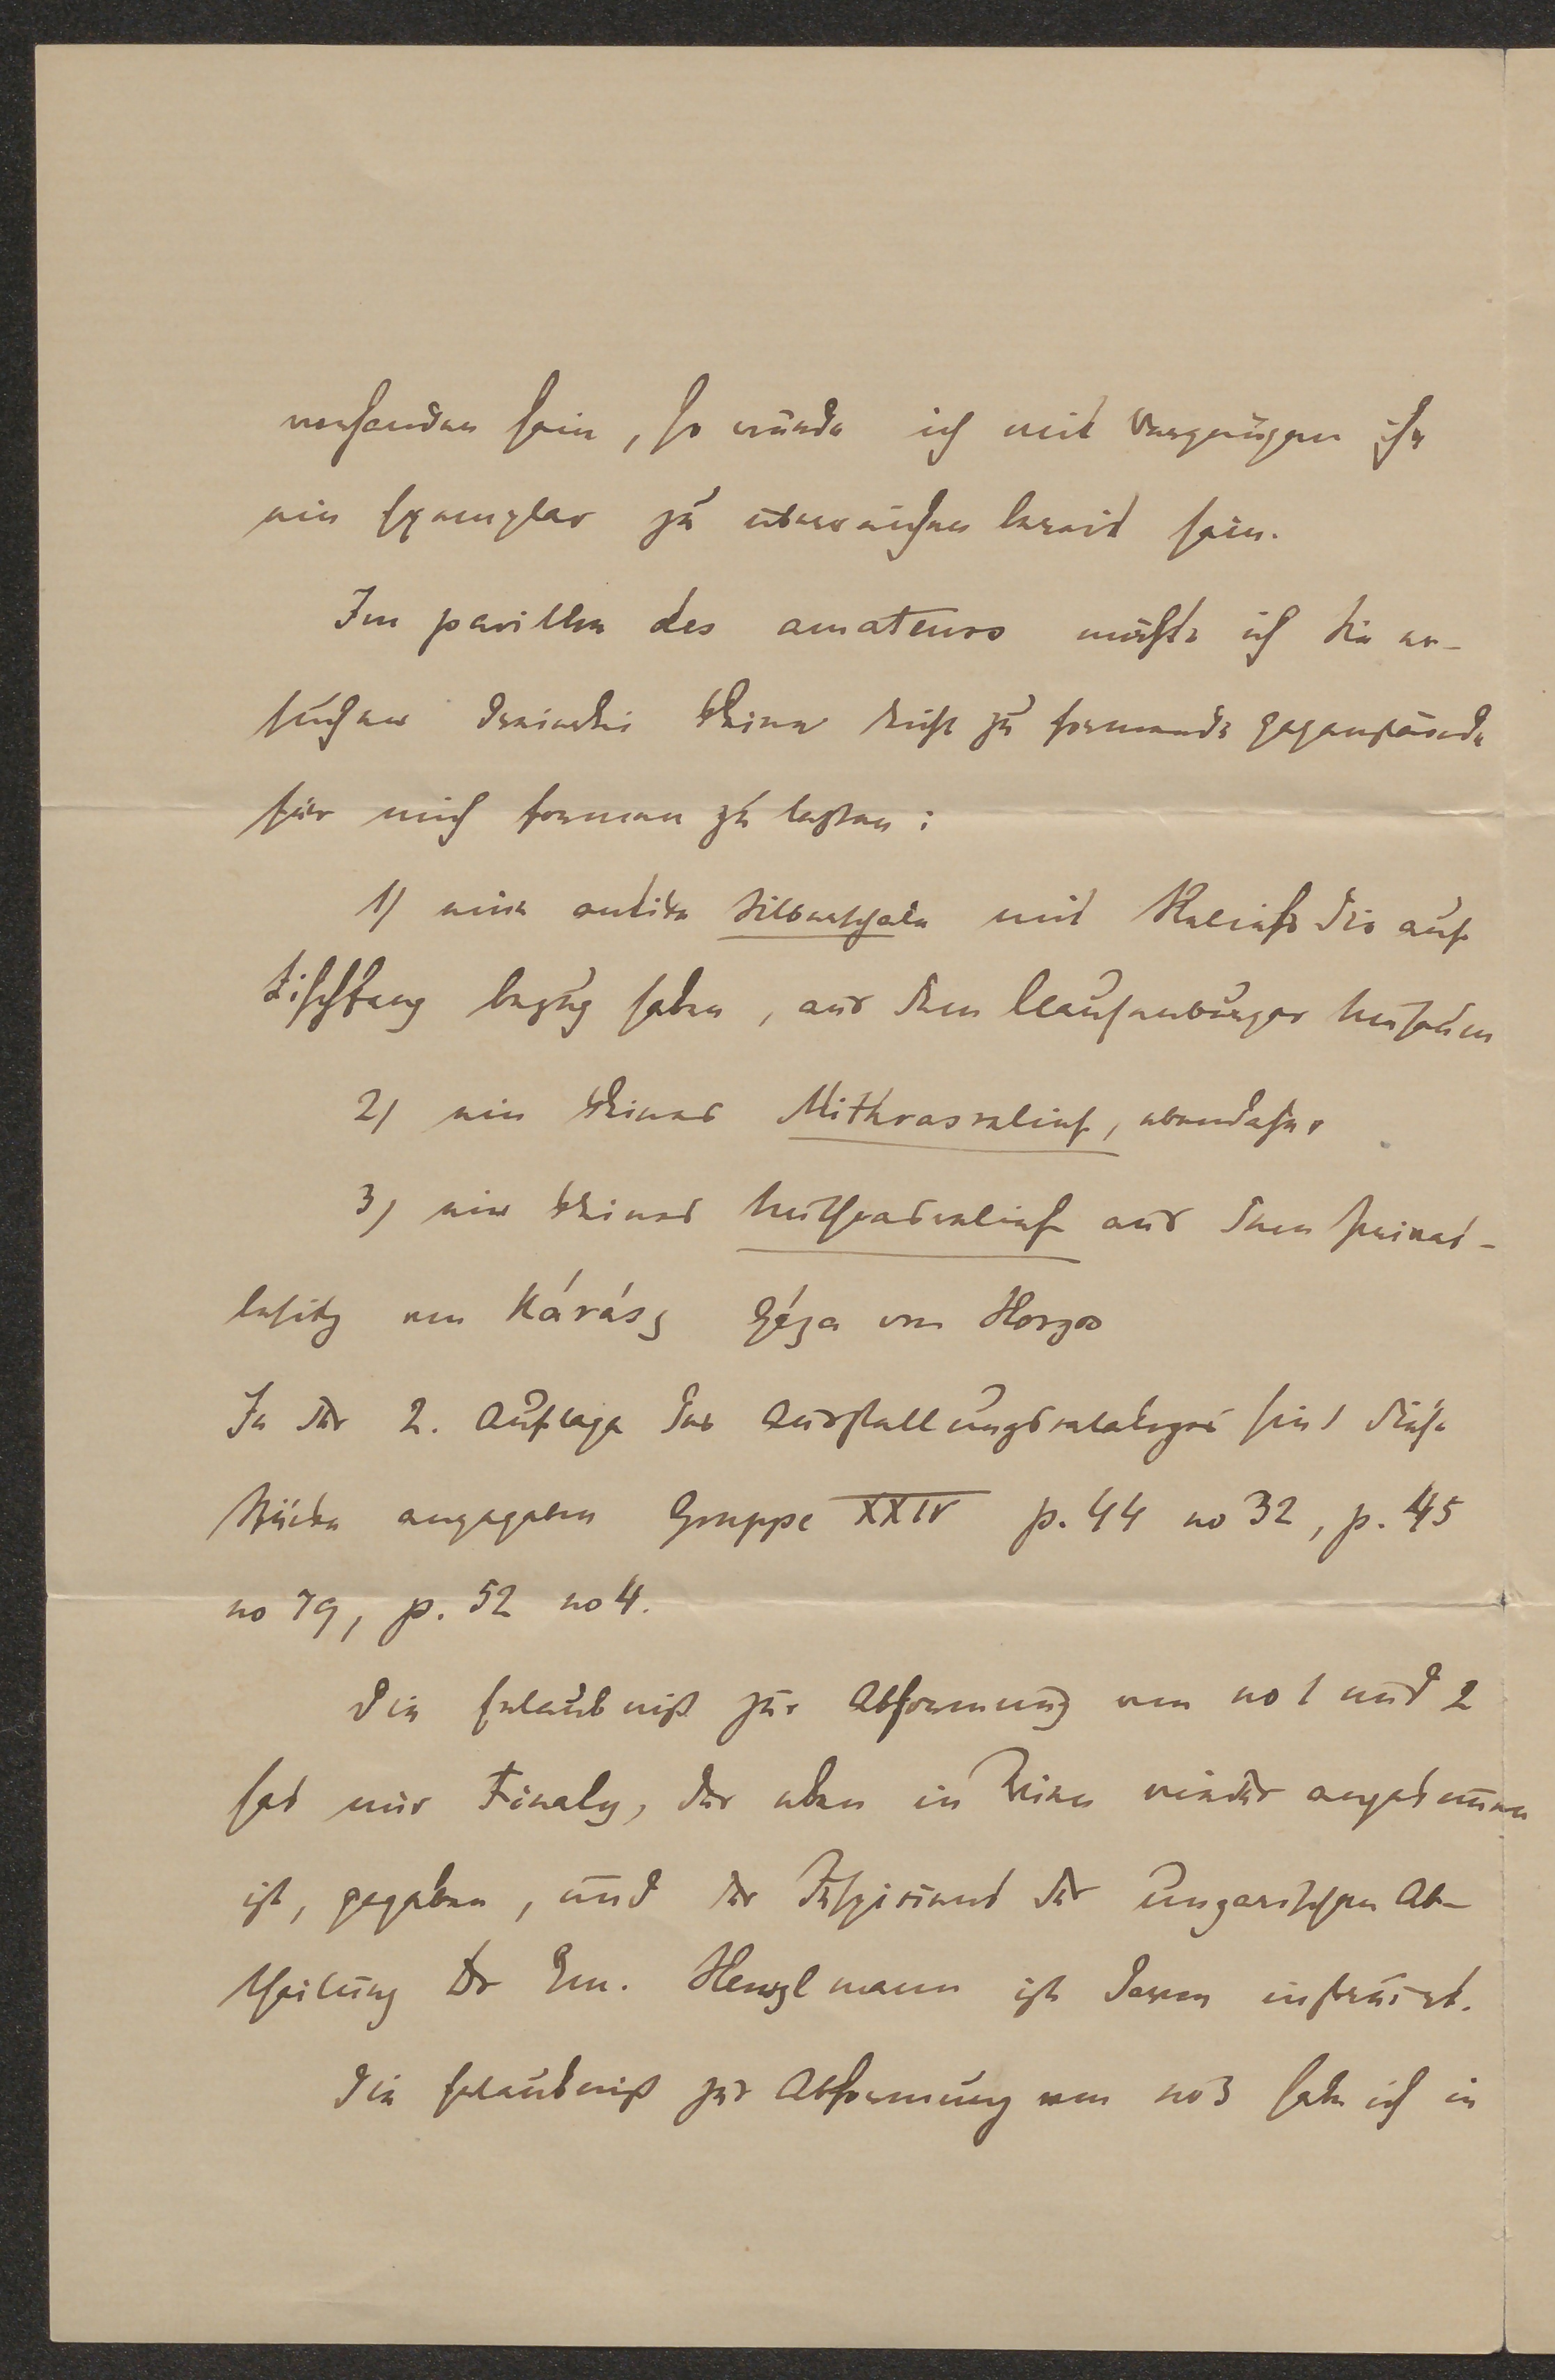 vorhanden sein, so würde ich mit Vergnügen ihr
ein Exemplar zu überreichen bereit sein.
Im pavillon des amateurs möchte ich Sie er-
suchen dreierlei kleine leicht zu formende Gegenstände
für mich formen zu lassen:
1) eine antike Silberschale mit Reliefs die auf
Fischfang bezug haben, aus dem Clausenburger Museum
2) ein kleines Mithrasrelief, ebendaher
3) ein kleines Mithrasrelief aus dem Privat-
besitz von Kárász Géza von Horgos
In der 2. Auflage des Ausstellungscataloges sind diese
Stücke angegeben Gruppe XXIV p. 44 no 32, p. 45
no 79, p. 52 no 4.
Die Erlaubniß zur Abformung von no 1 und 2
hat mir Finaly, der eben in Wien wieder angekommen
ist, gegeben, und der Dirigent der ungarischen Ab-
theilung Dr Em. Henszlmann ist davon instruirt.
Die Erlaubniß zur Abformung von no 3 habe ich in